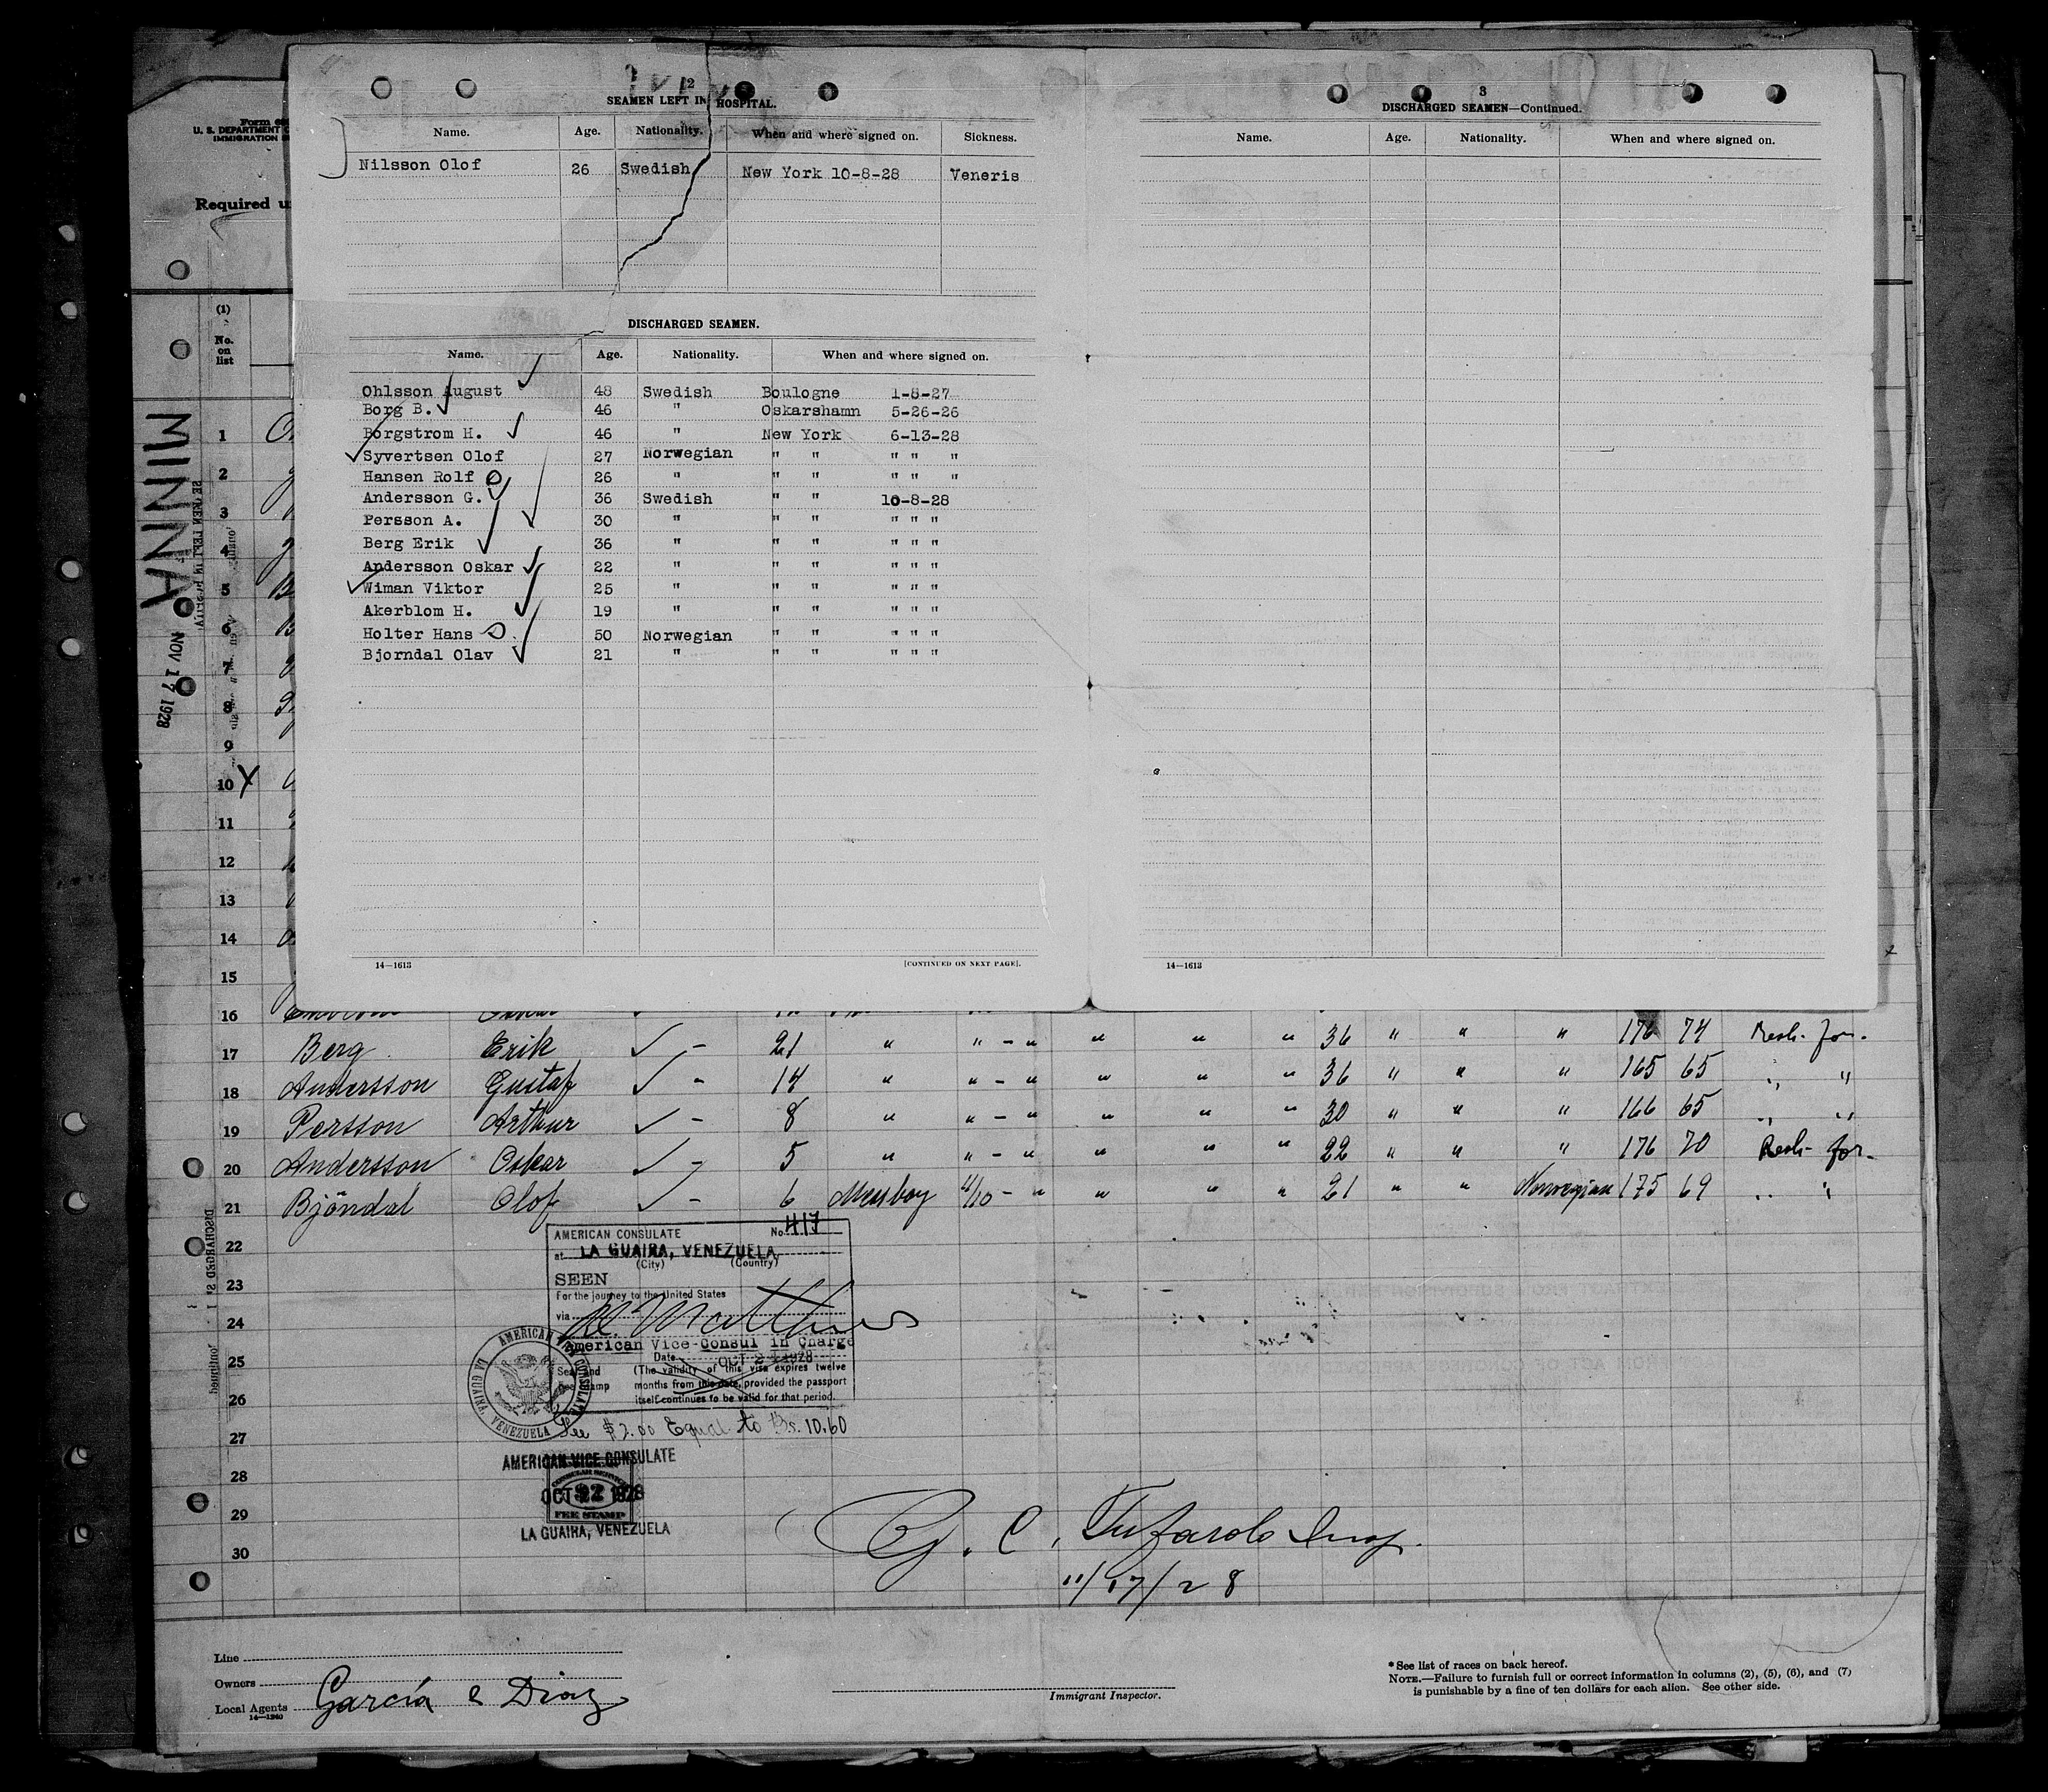 2
SEAMEN LEFT IN HOSPITAL.
Name. Age. Nationality. When and where signed on. Sickness.
Nilsson Olof 26 Swedish New York 10-8-28 Veneris
DISCHARGED SEAMEN.
Name. Age. Nationality. When and where signed on.
Ohlsson August 48 Swedish Boulogne 1-8-27
Borg B. 46 " Oskarshamn 5-26-26
Borgstrom H. 46 " New York 6-13-28
Syvertsen Olof 27 Norwegian " " " " "
Hansen Rolf 26 " " " " " "
Andersson G. 36 Swedish " " 10-8-28
Persson A. 30 " " " " " "
Berg Erik 36 " " " " " "
Andersson Oskar 22 " " " " " "
Wiman Viktor 25 " " " " " "
Akerblom H. 19 " " " " " "
Holter Hans 50 Norwegian " " " " "
Bjorndal Olav 21 " " " " " "
14—1613 [CONTINUED ON NEXT PAGE].
3
DISCHARGED SEAMEN—Continued.
Name. Age. Nationality. When and where signed on.
14—1613
Form
U. S. DEPARTMENT
IMMIGRATION
Required
(1)
No.
on
list
MINNA
NOV 17 1928
1
2
3
4
5
6
7
8
9
10 X
11
12
13
14
15
16
17 Berg Erik ✓ - 21 " " - " " " " 36 " " " 176 74
18 Andersson Gustaf ✓ - 14 " " - " " " " 36 " " " 165 65 " "
19 Persson Arthur ✓ - 8 " " - " " " " 30 " " " 166 65 " "
20 Andersson Oskar ✓ - 5 " " - " " " " 22 " " " 176 70
21 Bjöndal Olof ✓ - 6 Messboy 4/10 - " " " " 21 " " Norwegian 175 69 " "
22
23
24
25
26
27
28
29
30
AMERICAN CONSULATE No. 417
at LA GUAIRA, VENEZUELA
(City) (Country)
SEEN
For the journey to the United States
via
American Vice-Consul in Charge
Date OCT 2 1928
Seal and
Fee Stamp
(The validity of this visa expires twelve
months from this date, provided the passport
itself continues to be valid for that period.
AMERICAN VICE CONSULATE
LA GUAIRA, VENEZUELA
Fee $2.00 Equal to Bs. 10.60
AMERICAN VICE CONSULATE
CONSULAR SERVICE
OCT 22 1928
FEE STAMP
LA GUAIRA, VENEZUELA
11/17/28
Line
Owners
Local Agents García & Diaz
14—1240
Immigrant Inspector.
* See list of races on back hereof.
NOTE.—Failure to furnish full or correct information in columns (2), (5), (6), and (7)
is punishable by a fine of ten dollars for each alien. See other side.